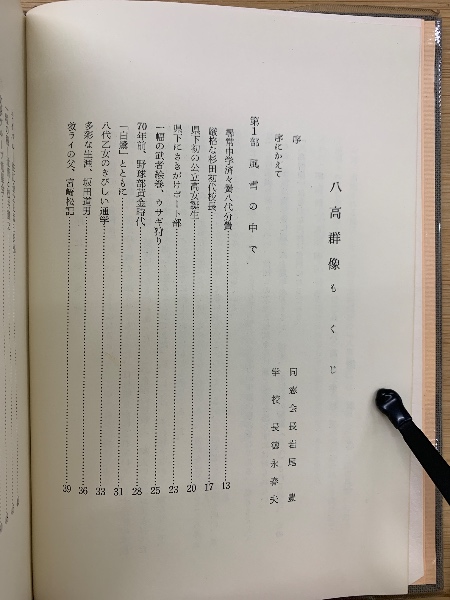 八高群像 もくじ
序 同窓会長 岩尾豊
序にかえて 学校長 徳永春夫
第1部 風雪の中で
尋常中学済々黌八代分黌 13
厳格な杉田初代校長 17
県下初の公立高女誕生 20
県下にさきがけボート部 23
一幅の武者絵巻、ウサギ狩り 25
70年前、野球部黄金時代 28
「白鷺」とともに 31
八代乙女のきびしい通学 33
多彩な生涯、坂田道男 36
救ライの父、宮崎松記 39